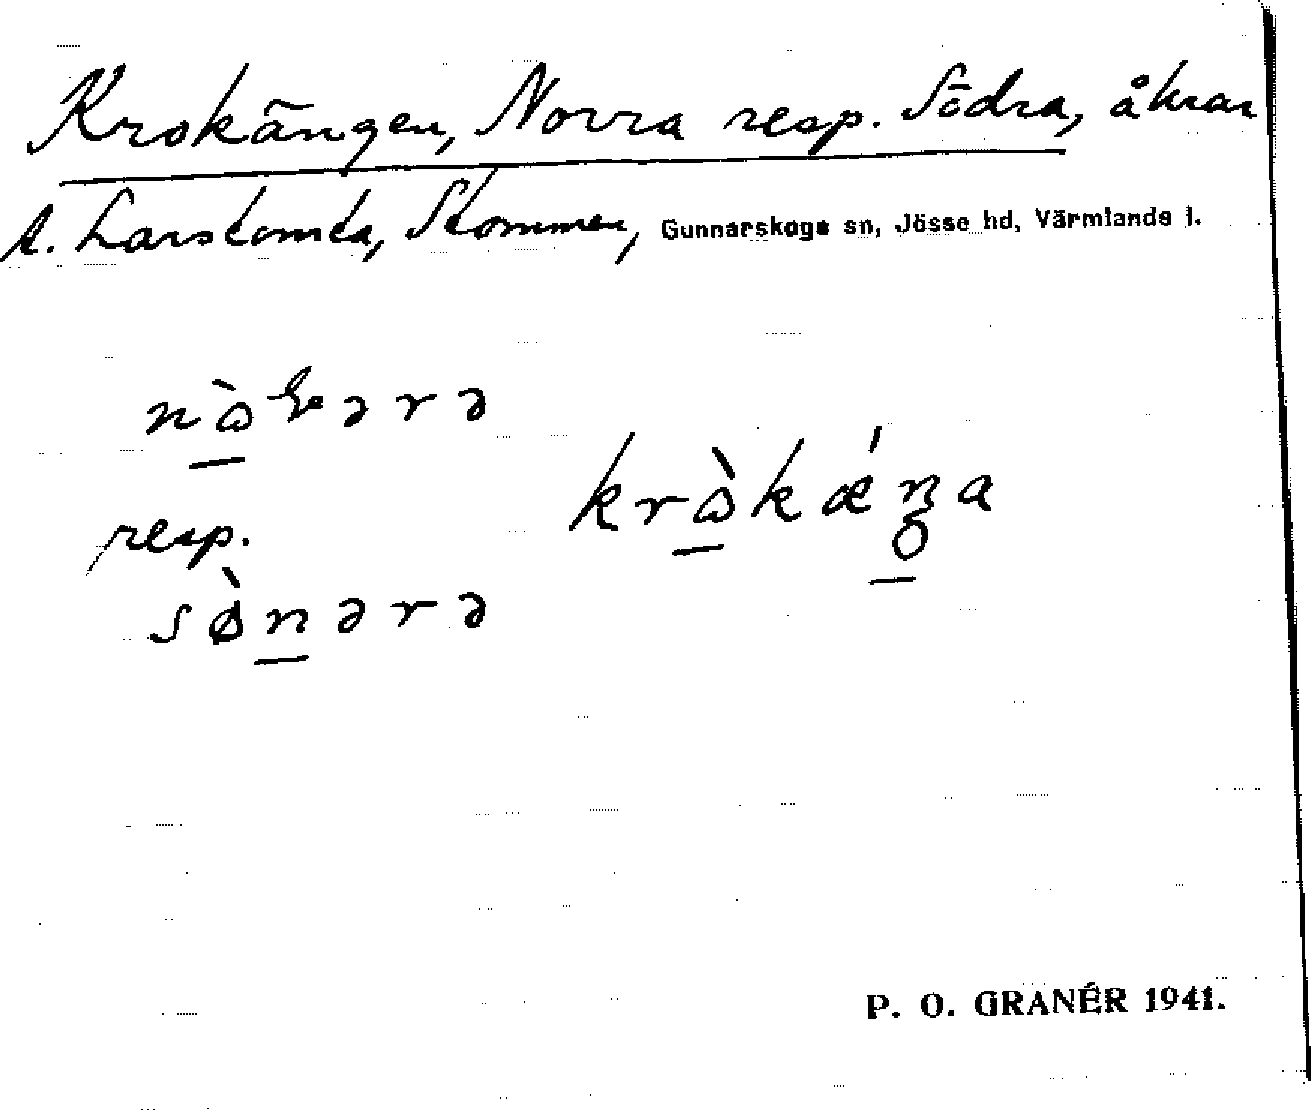 Krokängen, Norra resp. Södra, åkrar
t. Larstomta, Stommen, Gunnarskogs sn, Jösse hd, Värmlands l.
resp.
P. O. GRANÉR 1941.